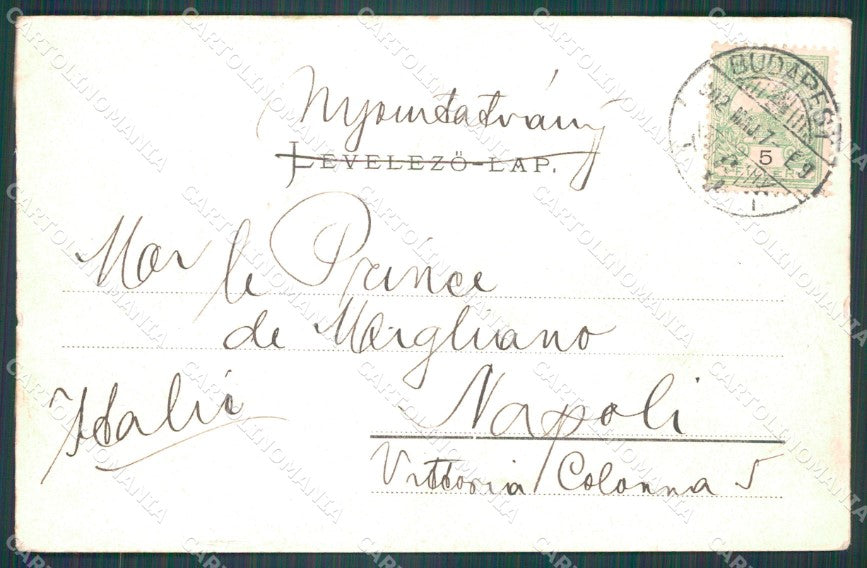 Nyomtatvány
LEVELEZŐ-LAP.
BUDAPEST
5
Mor le Prince
de Migliano
Napoli
Italie
Vittoria Colonna 5
CARTOLINOMANIA